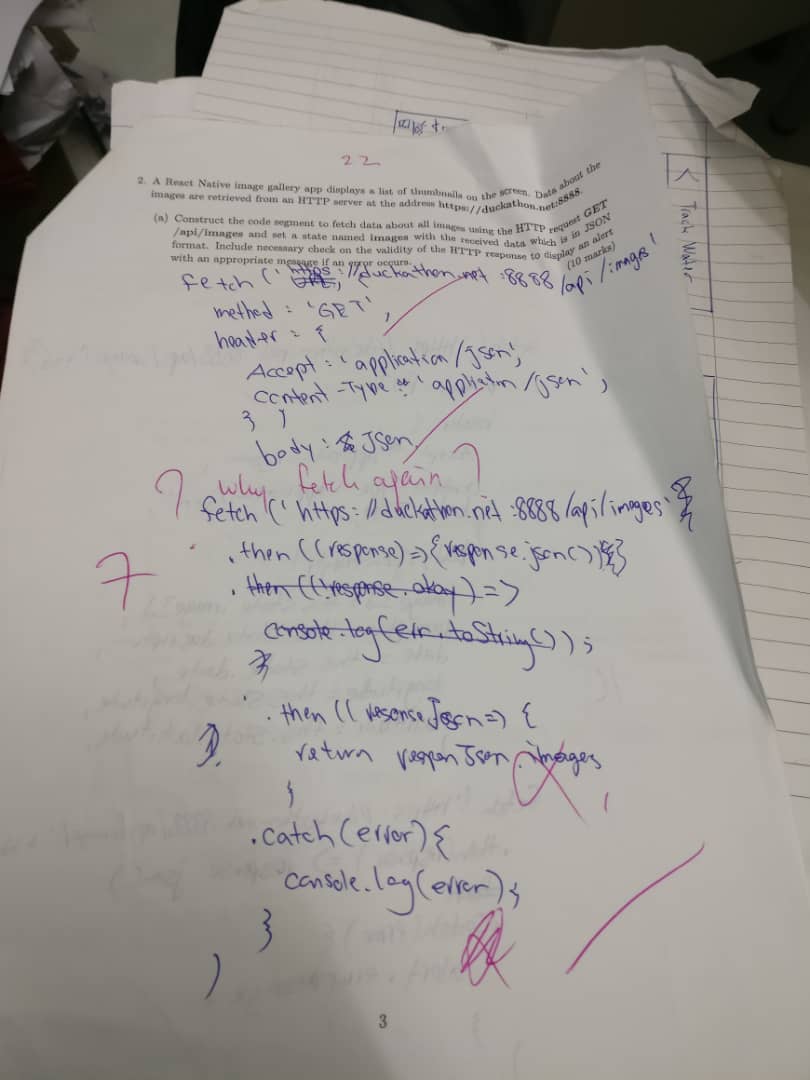 22
2. A React Native image gallery app displays a list of thumbnails on the screen. Data about the
images are retrieved from an HTTP server at the address https://duckathon.net:8888.
(a) Construct the code segment to fetch data about all images using the HTTP request GET
/api/images and set a state named images with the received data which is in JSON
format. Include necessary check on the validity of the HTTP response to display an alert
with an appropriate message if an error occurs.
(10 marks)
fetch ('https://duckathon.net:8888/api/images'
method : 'GET',
header : {
Accept : 'application/json',
Content-Type : 'application/json',
} }
body : Json
? why fetch again ?
fetch ('https://duckathon.net:8888/api/images'
7
.then ((response)=>{response.json()}
.then ((!response.okay)=>
console.log(err.toString());
}
.then (( resonseJson=> {
return responJson.images
}
.catch(error){
console.log(error);
}
)
3
< Track Water